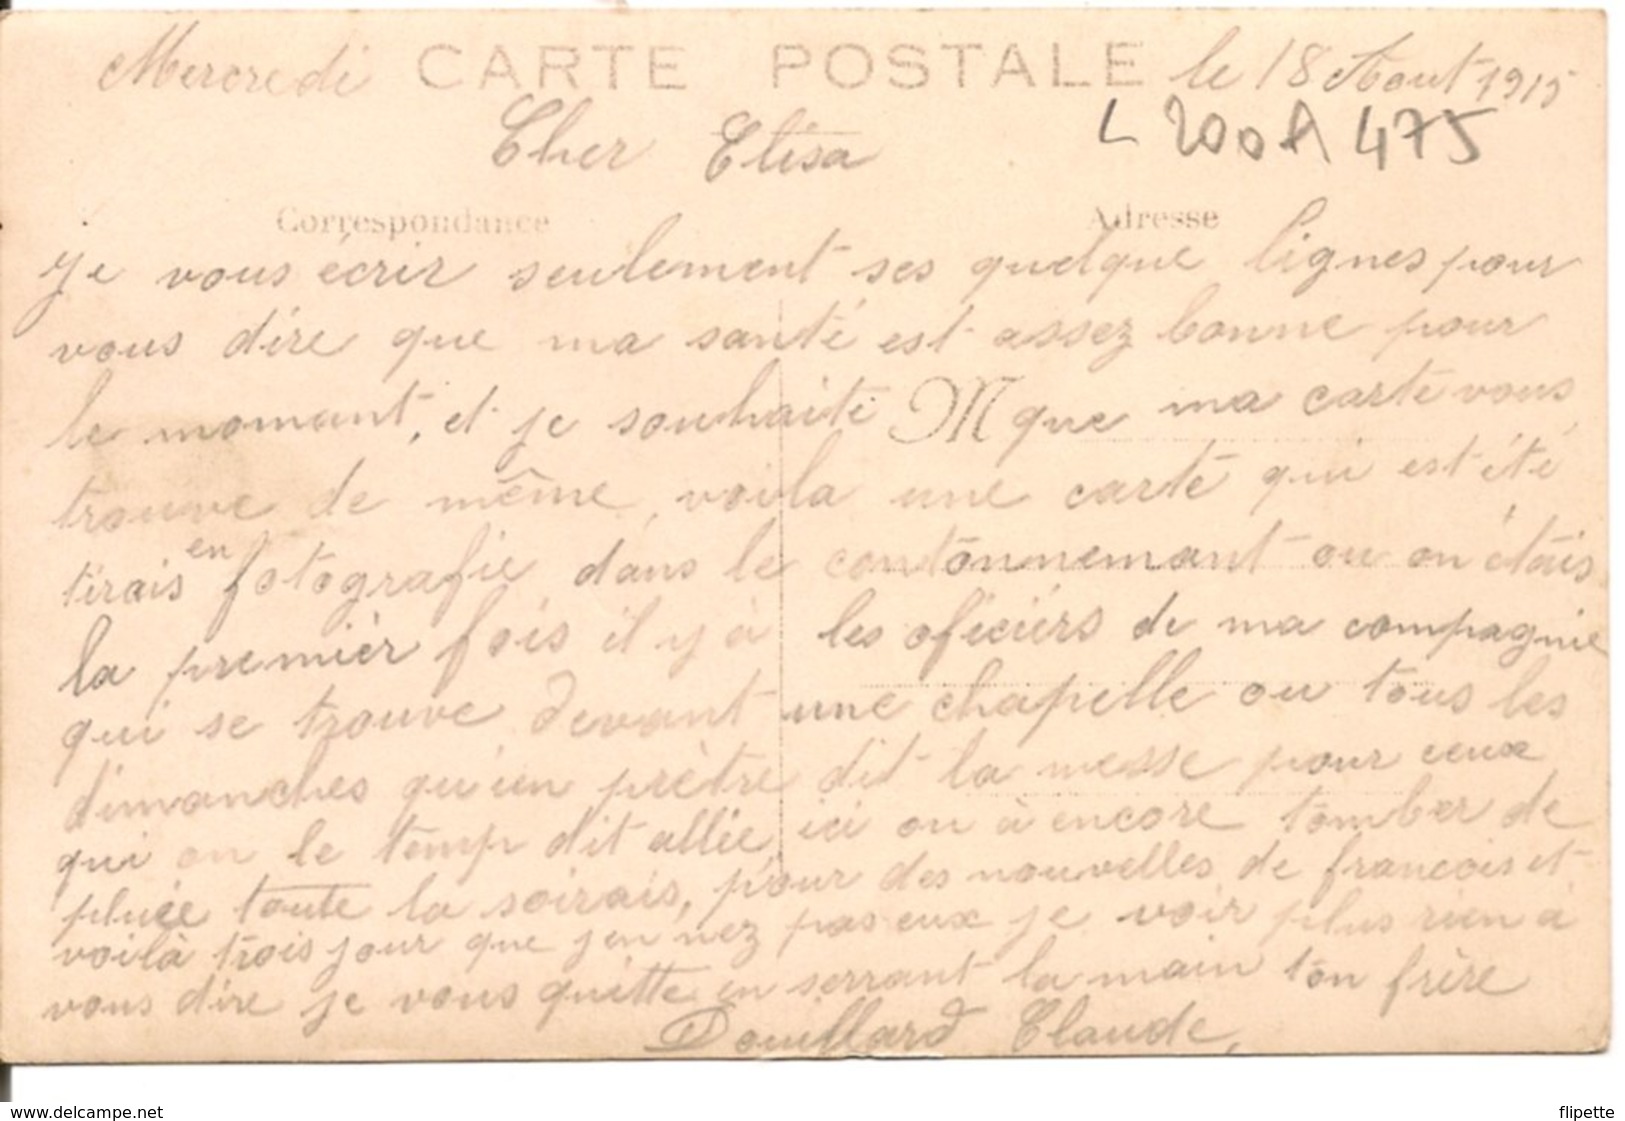 Mercredi CARTE POSTALE le 18 Aout 1915
L 200A 475
Cher Elisa
Correspondance Adresse
je vous écrir seulement ses quelque lignes pour
vous dire que ma santé est assez bonne pour
le momant, et je souhaite M que ma carte vous
trouve de même, voila une carte qui est été
tirais en fotografie dans le contonnemant ou on étais
la premièr fois il y à les oficiérs de ma compagnie
qui se trouve devant une chapelle ou tous les
dimanches qu'un prètre dit la messe pour ceux
qui on le temp dit allée, ici on à encore tomber de
pluiee toute la soirais, pour des nouvelles de francois et
voilà trois jour que jen nez pas eux je voir plus rien à
vous dire je vous quitte en serrant la main ton frère
Douillard Claude,
www.delcampe.net flipette